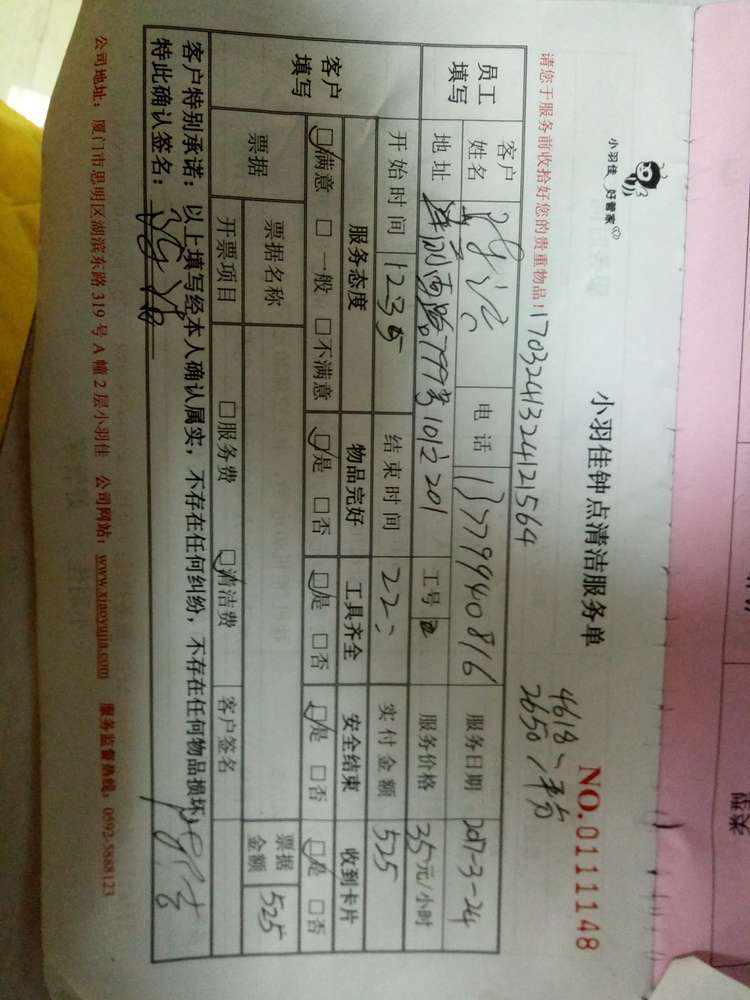 小羽佳 好管家
小羽佳钟点清洁服务单
NO.0111148
请您于服务前收拾好您的贵重物品！
170324132412564
4618、
2650
员工填写
客户姓名
电话 13779940816
服务日期 2017-3-24
地址 777号101之201
工号
服务价格 35元/小时
开始时间
结束时间 22:
实付金额 525
客户填写
服务态度 物品完好 工具齐全 安全结束 收到卡片
☑满意 □一般 □不满意 ☑是 □否 ☑是 □否 ☑是 □否 ☑是 □否
票据
票据名称
票据金额 525
开票项目 □服务费 ☑清洁费 客户签名
客户特别承诺：以上填写经本人确认属实，不存在任何纠纷，不存在任何物品损坏，
特此确认签名：
公司地址：厦门市思明区湖滨东路 319 号 A 幢 2 层小羽佳 公司网站：www.xiaoyujia.com 服务监督热线：0592-5888123